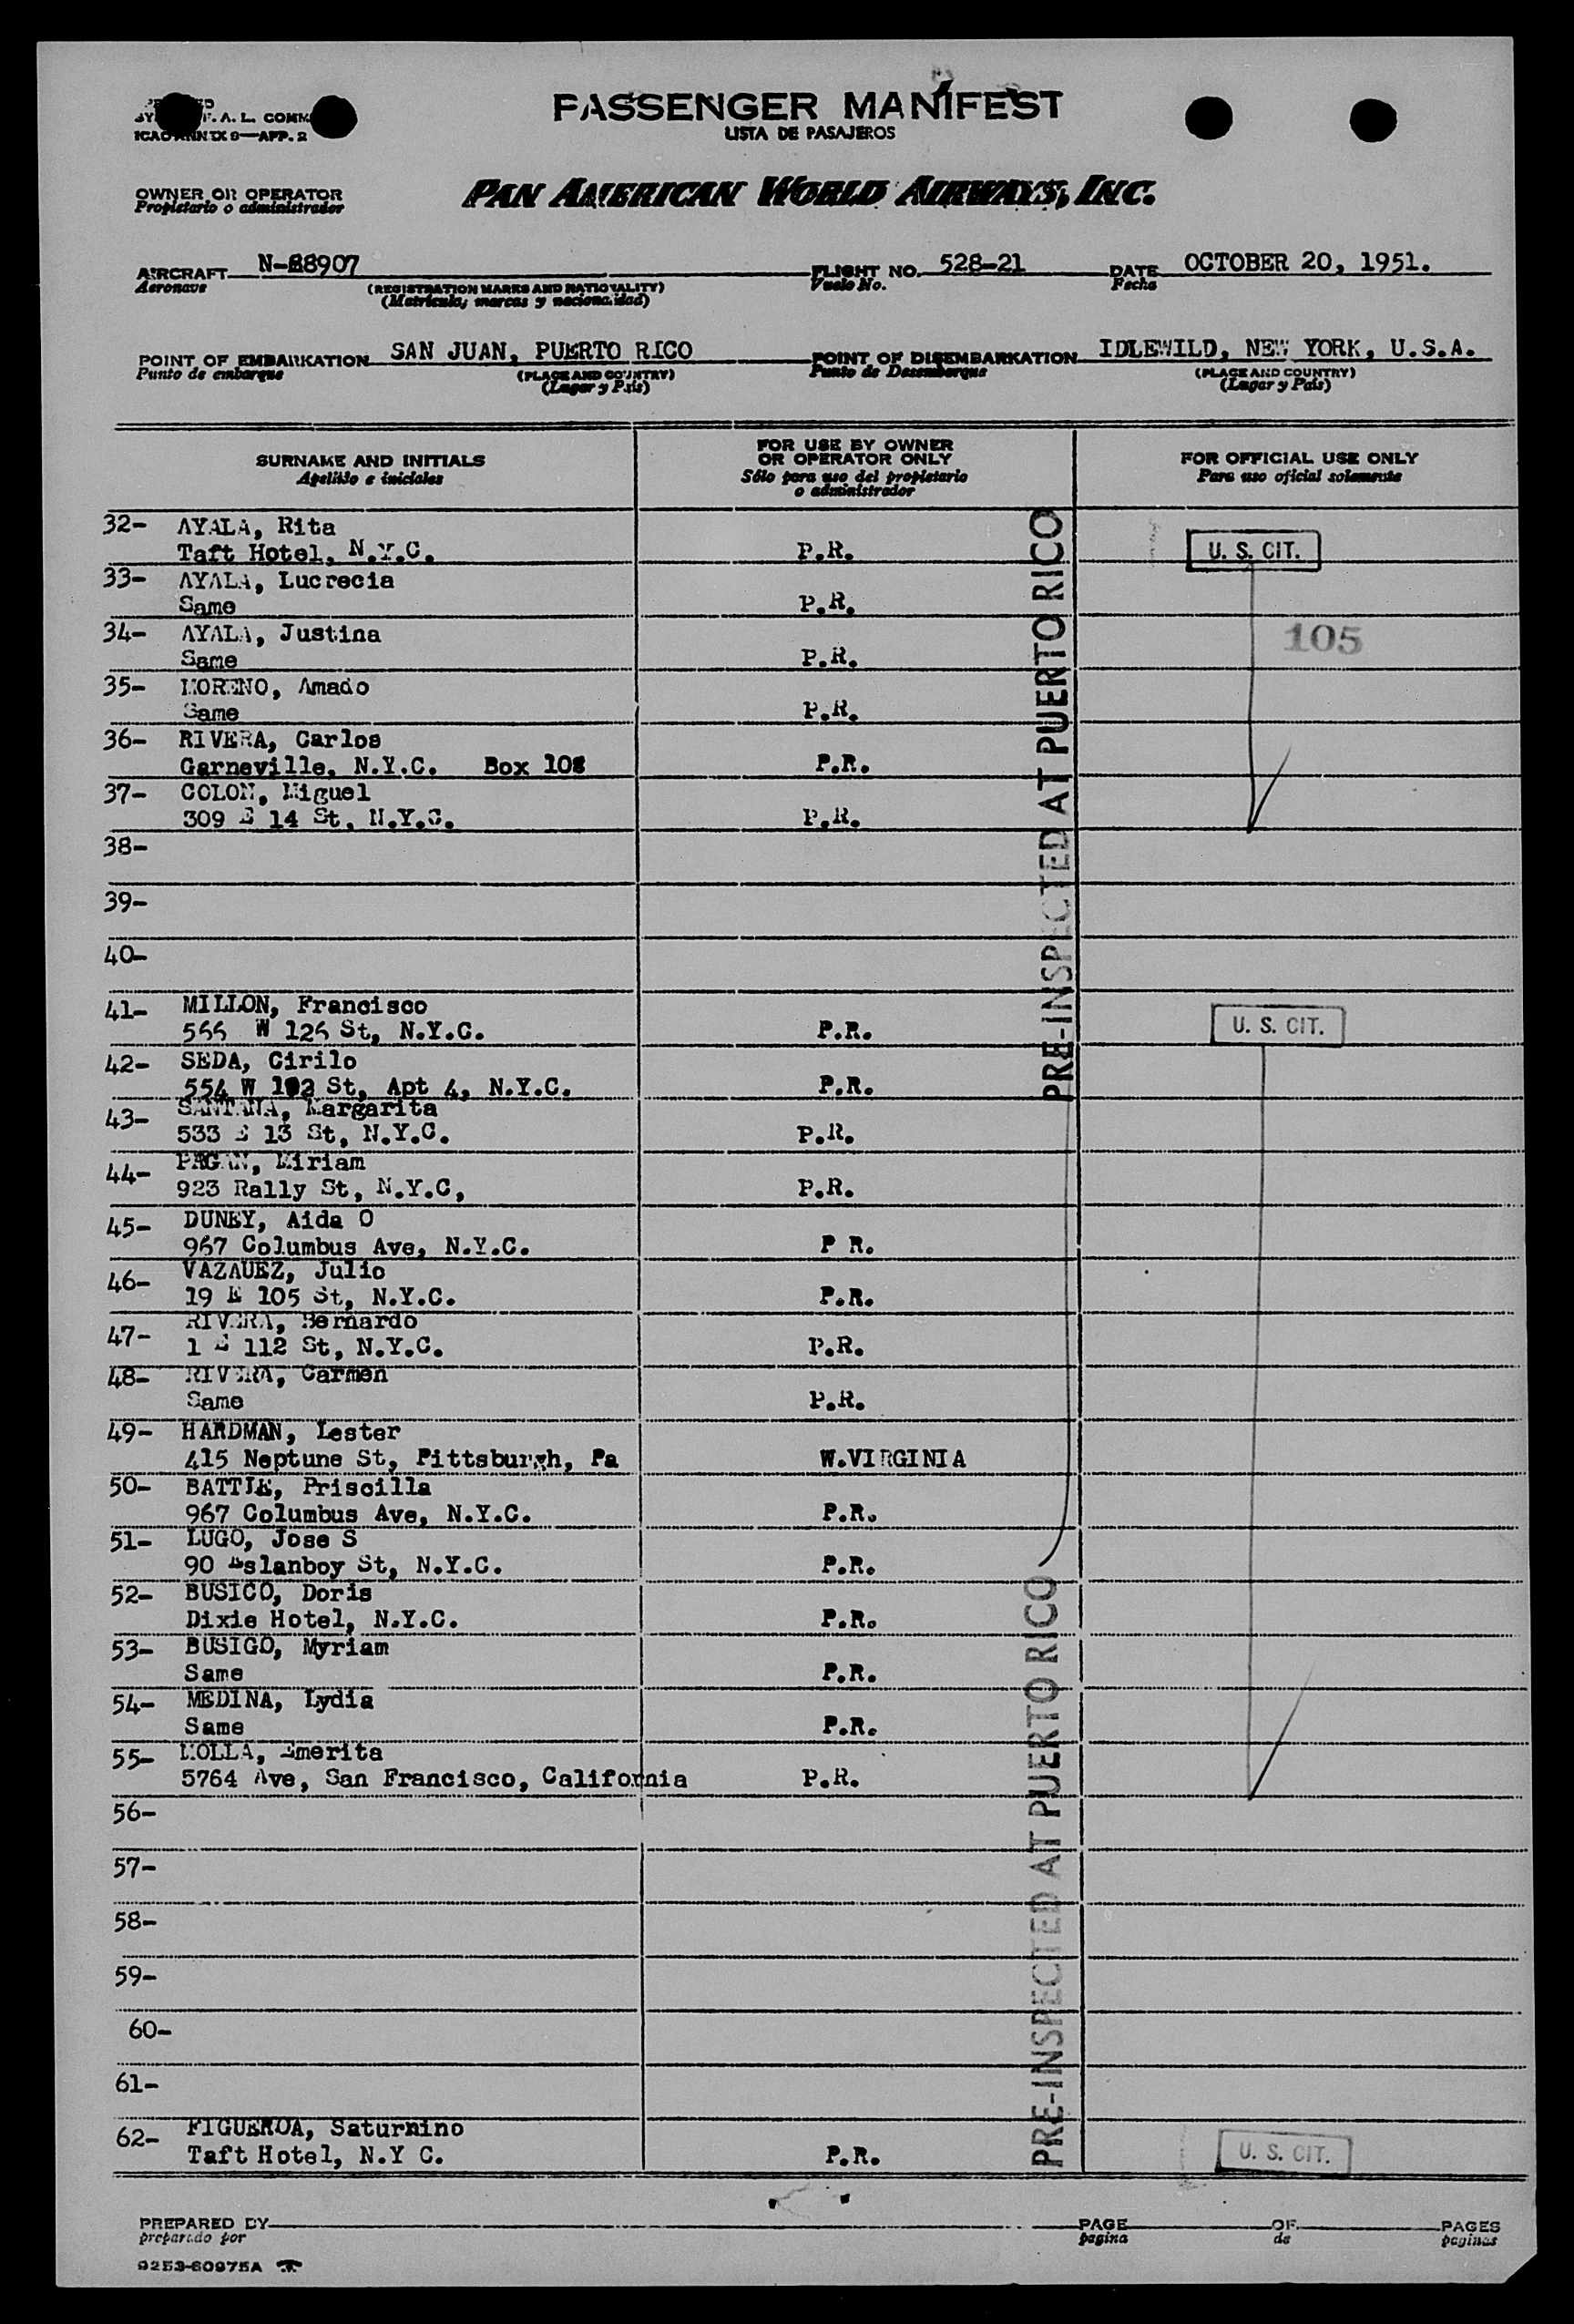 PASSENGER MANIFEST
LISTA DE PASAJEROS
F. A. L. COMM
ICAO ANNEX 9—APP. 2
OWNER OR OPERATOR
Propietario o administrador
PAN AMERICAN WORLD AIRWAYS, INC.
AIRCRAFT N-88907 FLIGHT NO. 528-21 DATE OCTOBER 20, 1951.
Aeronave (REGISTRATION MARKS AND NATIONALITY) Vuelo No. Fecha
(Matrícula, marcas y nacionalidad)
POINT OF EMBARKATION SAN JUAN, PUERTO RICO POINT OF DISEMBARKATION IDLEWILD, NEW YORK, U.S.A.
Punto de embarque (PLACE AND COUNTRY) Punto de Desembarque (PLACE AND COUNTRY)
(Lugar y País) (Lugar y País)
SURNAME AND INITIALS FOR USE BY OWNER OR OPERATOR ONLY FOR OFFICIAL USE ONLY
Apellido e iniciales Sólo para uso del propietario o administrador Para uso oficial solamente
32- AYALA, Rita
Taft Hotel, N.Y.C. P.R. U. S. CIT.
33- AYALA, Lucrecia
Same P.R.
34- AYALA, Justina 105
Same P.R.
35- MORENO, Amado
Same P.R.
36- RIVERA, Carlos
Garneville, N.Y.C. Box 108 P.R.
37- COLON, Miguel
309 E 14 St, N.Y.C. P.R.
38-
39-
40-
PRE-INSPECTED AT PUERTO RICO
41- MILLON, Francisco
566 W 126 St, N.Y.C. P.R. U. S. CIT.
42- SEDA, Cirilo
554 W St, Apt 4, N.Y.C. P.R.
43- SANTANA, Margarita
533 E 13 St, N.Y.C. P.R.
44- PAGAN, Miriam
923 Rally St, N.Y.C, P.R.
45- DUNEY, Aida O
967 Columbus Ave, N.Y.C. P R.
46- VAZAUEZ, Julio
19 E 105 St, N.Y.C. P.R.
47- RIVERA, Bernardo
1 E 112 St, N.Y.C. P.R.
48- RIVERA, Carmen
Same P.R.
49- HARDMAN, Lester
415 Neptune St, Pittsburgh, Pa W.VIRGINIA
50- BATTLE, Priscilla
967 Columbus Ave, N.Y.C. P.R.
51- LUGO, Jose S
90 Eslanboy St, N.Y.C. P.R.
52- BUSICO, Doris
Dixie Hotel, N.Y.C. P.R.
53- BUSIGO, Myriam
Same P.R.
54- MEDINA, Lydia
Same P.R.
55- MOLLA, Emerita
5764 Ave, San Francisco, California P.R.
56-
57-
58-
59-
60-
61-
PRE-INSPECTED AT PUERTO RICO
62- FIGUEROA, Saturnino
Taft Hotel, N.Y C. P.R. U. S. CIT.
PREPARED BY PAGE OF PAGES
preparado por pagina de paginas
9253-60975A